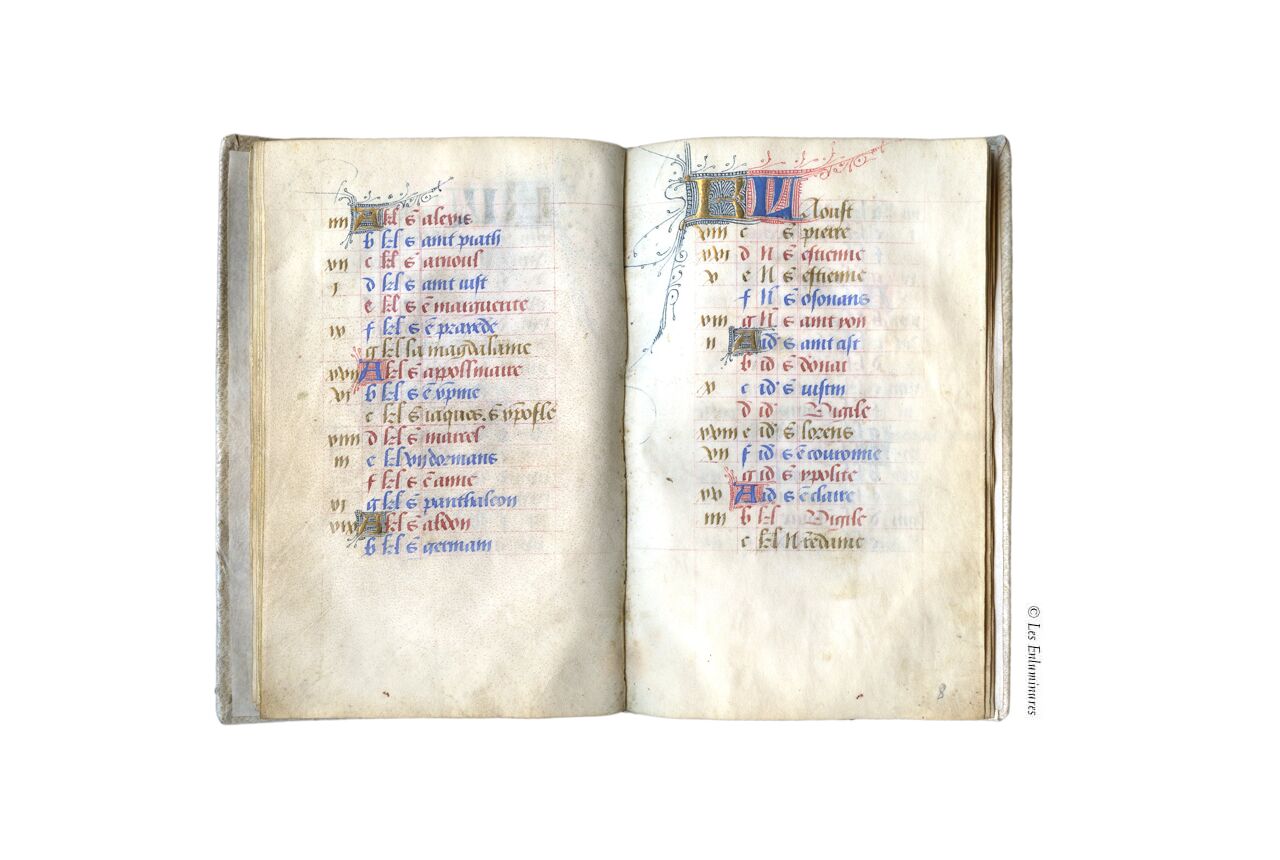 iiii A kl s̄ alexis
b kl s̄ aint piath
vii c kl s̄ arnoul
j d kl s̄ aint iust
e kl s̄ ē marguerite
ix f kl s̄ ē praxede
g kl la magdalaine
xvii A kl s̄ appollinaire
vi b kl s̄ ē xp̄ine
c kl s̄ iaques. s̄ xp̄ofle
xiiii d kl s̄ marcel
iii e kl vii dormans
f kl s̄ ē anne
xi g kl s̄ panthaleon
A kl s̄ abdon
b kl s̄ germain
KL Aoust
viii c s̄ pierre
xvi d N s̄ estienne
v e N s̄ estienne
f N s̄ osouans
xiii g N s̄ aint yon
ii A id' s̄ aint sist
b id' s̄ donat
x c id' s̄ iustin
d id' Vigile
xviii e id' s̄ lorens
vii f id' s̄ ē couronne
g id s̄ ypolite
xv A id s̄ ē claire
iiii b kl Vigile
c kl N r̄e dame
8
© Les Enluminures